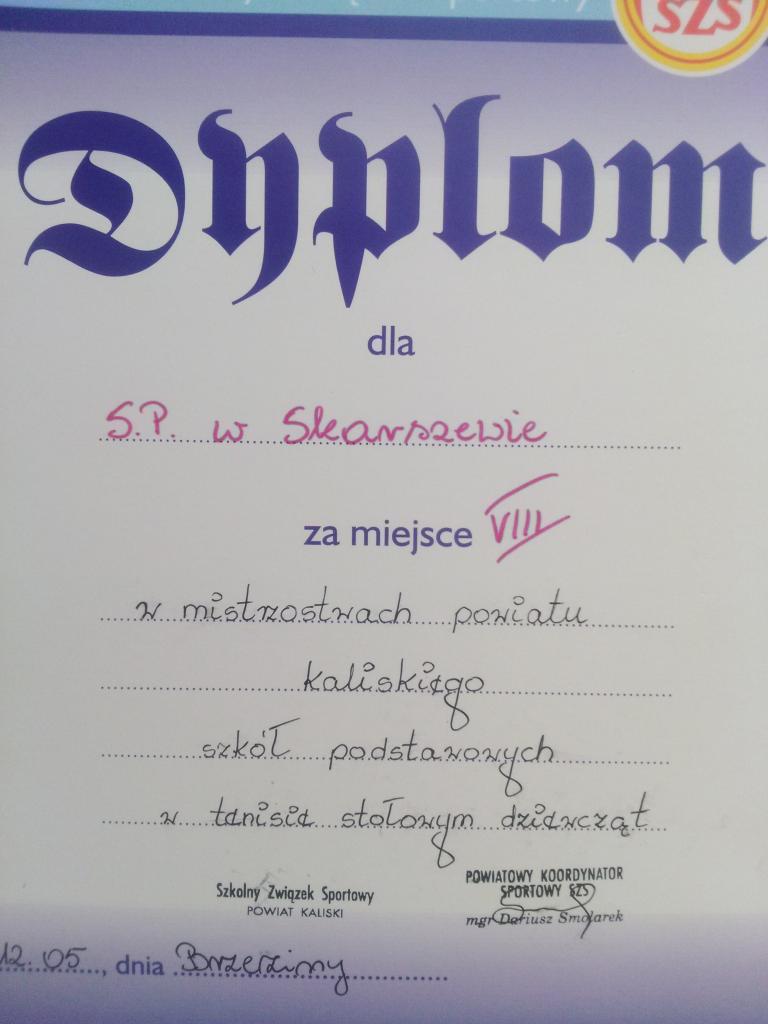 SZS
Dyplom
dla
S.P. w Skarszewie
za miejsce VIII
w mistrzostwach powiatu
kaliskiego
szkół podstawowych
w tenisie stołowym dziewcząt
Szkolny Związek Sportowy
POWIAT KALISKI
POWIATOWY KOORDYNATOR
SPORTOWY SZS
mgr Dariusz Smolarek
12.05, dnia Brzeziny